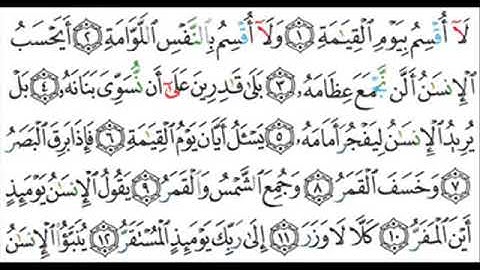 لَآ أُقْسِمُ بِيَوْمِ ٱلْقِيَـٰمَةِ ١ وَلَآ أُقْسِمُ بِٱلنَّفْسِ ٱللَّوَّامَةِ ٢ أَيَحْسَبُ
ٱلْإِنسَـٰنُ أَلَّن نَّجْمَعَ عِظَامَهُۥ ٣ بَلَىٰ قَـٰدِرِينَ عَلَىٰٓ أَن نُّسَوِّىَ بَنَانَهُۥ ٤ بَلْ
يُرِيدُ ٱلْإِنسَـٰنُ لِيَفْجُرَ أَمَامَهُۥ ٥ يَسْـَٔلُ أَيَّانَ يَوْمُ ٱلْقِيَـٰمَةِ ٦ فَإِذَا بَرِقَ ٱلْبَصَرُ
٧ وَخَسَفَ ٱلْقَمَرُ ٨ وَجُمِعَ ٱلشَّمْسُ وَٱلْقَمَرُ ٩ يَقُولُ ٱلْإِنسَـٰنُ يَوْمَئِذٍ
أَيْنَ ٱلْمَفَرُّ ١٠ كَلَّا لَا وَزَرَ ١١ إِلَىٰ رَبِّكَ يَوْمَئِذٍ ٱلْمُسْتَقَرُّ ١٢ يُنَبَّؤُا۟ ٱلْإِنسَـٰنُ